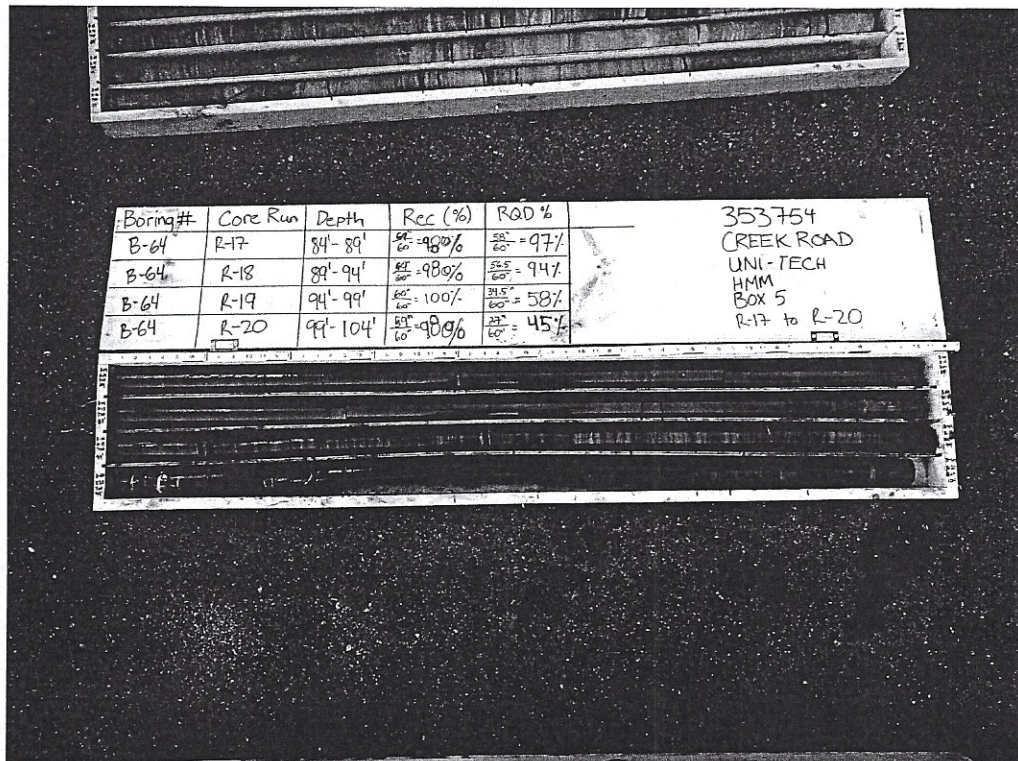 Boring # Core Run Depth Rec (%) RQD %
B-64 R-17 84'-89' 59"/60" = 98% 58"/60" = 97%
B-64 R-18 89'-94' /60" = 98% 56.5/60" = 94%
B-64 R-19 94'-99' 60"/60" = 100% 34.5"/60" = 58%
B-64 R-20 99'-104' 59"/60" = 98% 27"/60" = 45%
353754
CREEK ROAD
UNI-TECH
HMM
BOX 5
R-17 to R-20